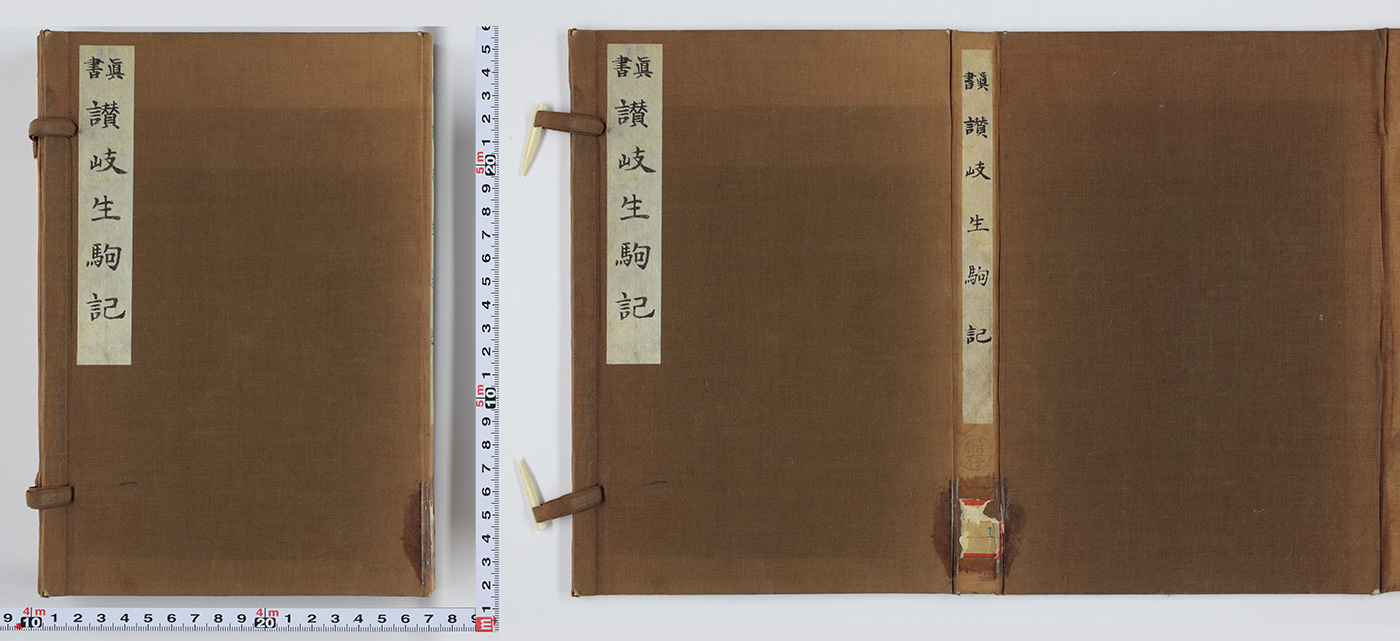 眞書
讃岐生駒記
眞書
讃岐生駒記
眞書
讃岐生駒記
1
6 5 4 3 2 1 5m 20 9 8 7 6 5 4 3 2 1 5m 10 9 8 7 6 5 4 3 2 1 m
9 4m 10 1 2 3 4 5 6 7 8 9 4m 20 1 2 3 4 5 6 7 8 9